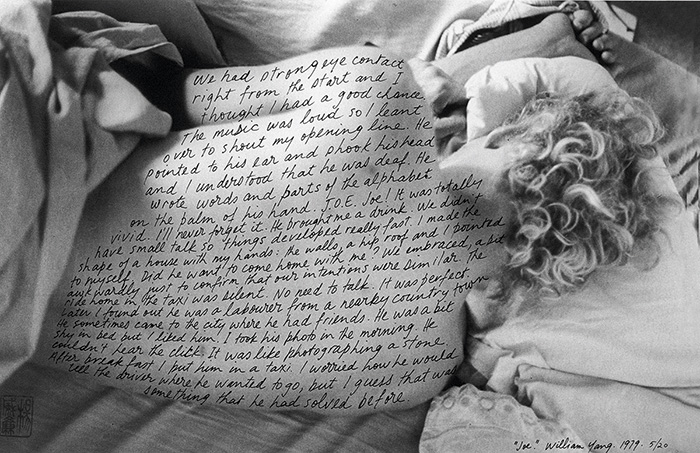 We had strong eye contact
right from the start and I
thought I had a good chance.
The music was loud so I leant
over to shout my opening line. He
pointed to his ear and shook his head
and I understood that he was deaf. He
wrote words and parts of the alphabet
on the balm of his hand. J.O.E. Joe! It was totally
vivid. I'll never forget it. He brought me a drink. We didn't
have small talk so things developed really fast. I made the
shape of a house with my hands: the walls, a hip roof and I pointed
to myself. Did he want to come home with me? We embraced, a bit
awkwardly just to confirm that our intentions were similar. The
ride home in the taxi was silent. No need to talk. It was perfect.
Later I found out he was a labourer from a nearby country town
He sometimes came to the city where he had friends. He was a bit
shy in bed but I liked him. I took his photo in the morning. He
couldn't hear the click. It was like photographing a stone.
After breakfast I put him in a taxi. I worried how he would
tell the driver where he wanted to go, but I guess that was
something that he had solved before.
"Joe." William Yang. 1979. 5/20